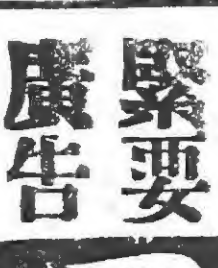 緊要
廣告